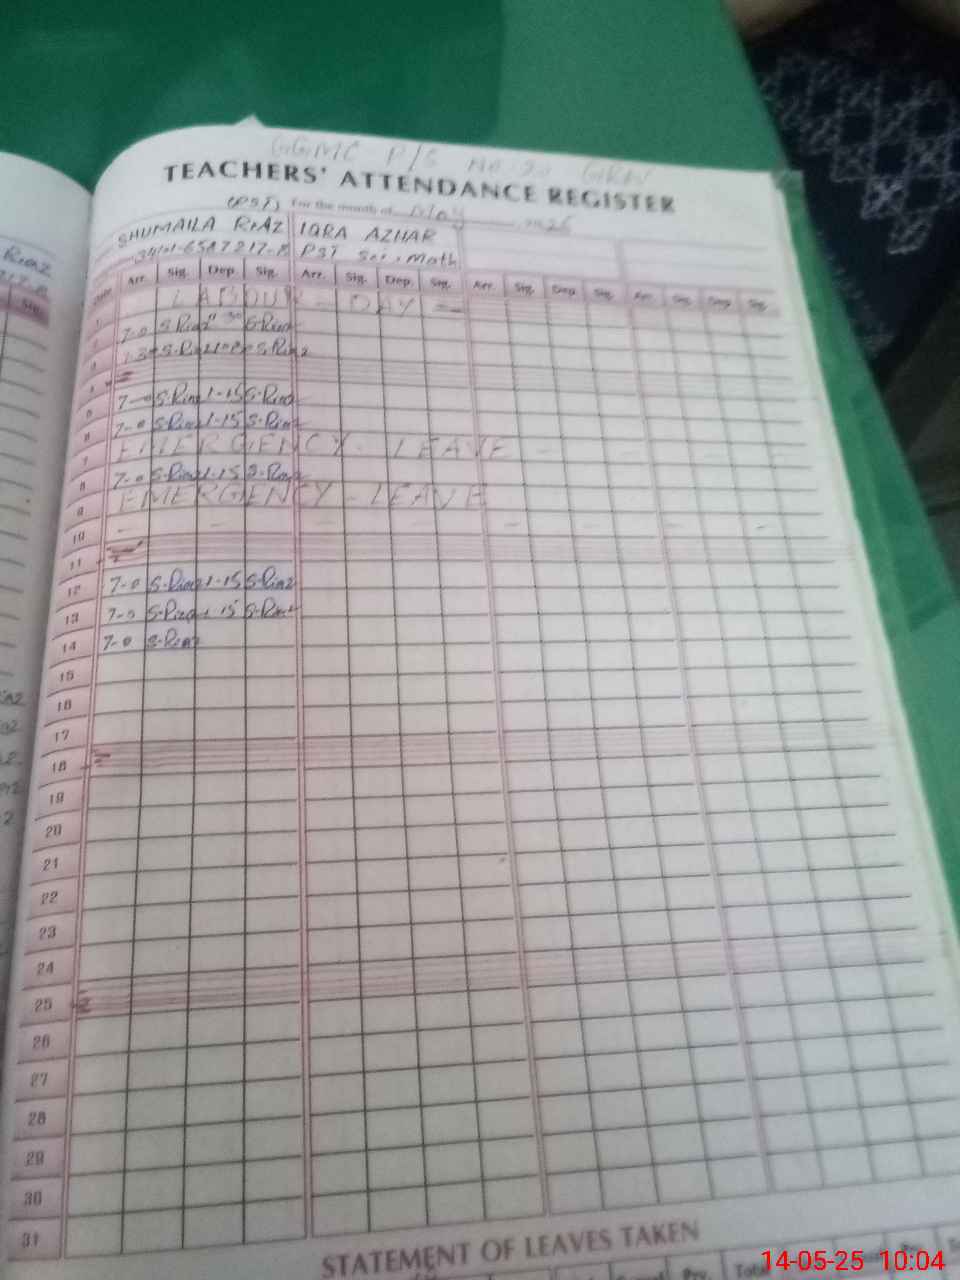 GGMC P/S No
TEACHERS' ATTENDANCE REGISTER
(PST) For the month of May
SHUMAILA RIAZ IQRA AZHAR
PST Sci. Math
Arr. Sig. Dep. Sig. Arr. Sig. Dep. Sig. Arr. Sig. Dep. Sig. Arr. Sig. Dep. Sig.
1 LABOUR - DAY
2 7-0 S-Riaz S-Riaz
3 S-Riaz S-Riaz
4
5 7-0 S-Riaz 1-15 S-Riaz
6 7-0 S-Riaz 1-15 S-Riaz
7 EMERGENCY - LEAVE
8 7-0 S-Riaz 1-15 S-Riaz
9 EMERGENCY - LEAVE
10
11
12 7-0 S-Riaz 1-15 S-Riaz
13 7-0 S-Riaz 1-15 S-Riaz
14 7-0 S-Riaz
15
16
17
18
19
20
21
22
23
24
25
26
27
28
29
30
31
STATEMENT OF LEAVES TAKEN
Total
14-05-25 10:04